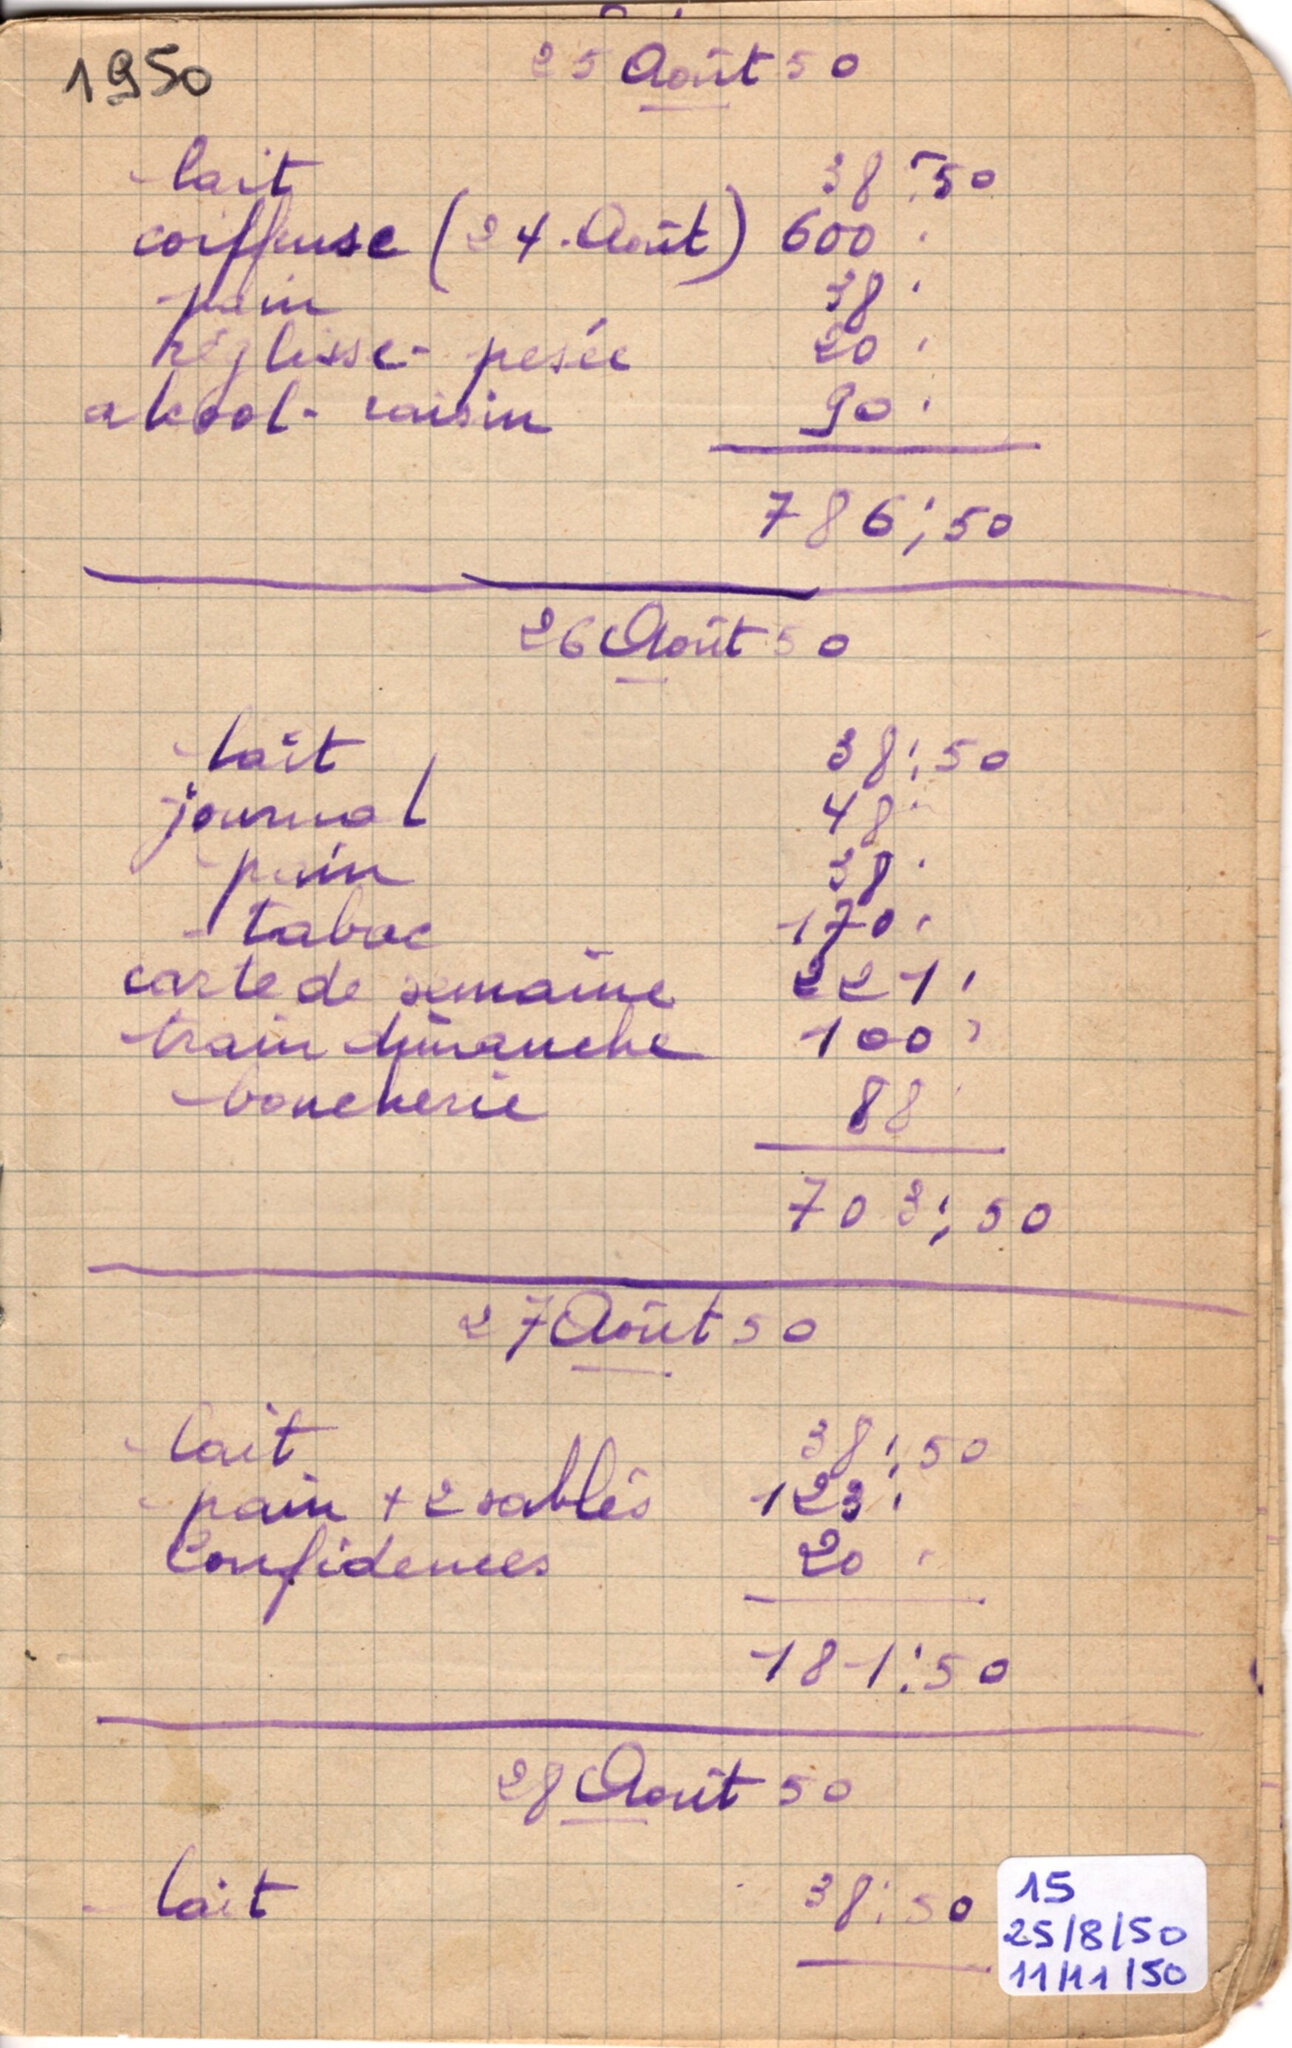 1950
25 Août 50
lait 38;50
coiffeuse (24. Août) 600
pain 38
réglisse - pesée 20
alcool - raisin 90
786;50
26 Août 50
lait 38;50
journal 48
pain 38
tabac 170
carte de semaine 221
train dimanche 100
boucherie 88
703;50
27 Août 50
lait 38;50
pain + 2 sablés 123
Confidences 20
181;50
28 Août 50
lait 38;50
15
25/8/50
11/11/50